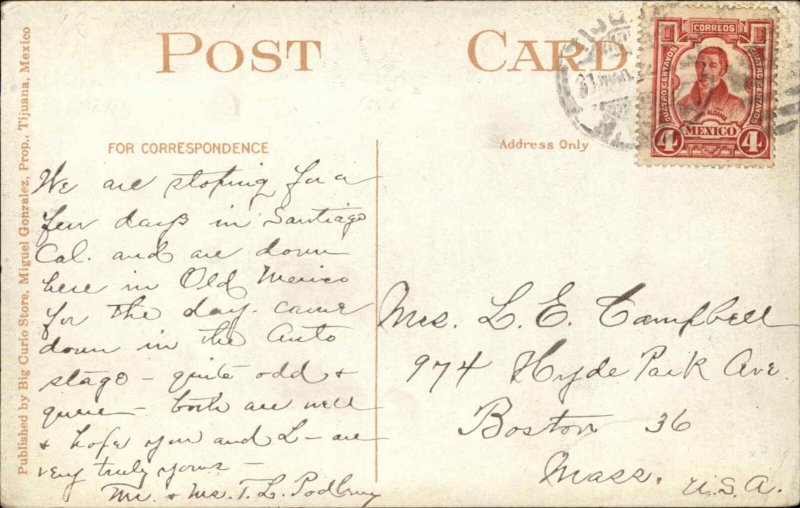 POST CARD
CORREOS
CUATRO CENTAVOS
CUATRO CENTAVOS
MEXICO
4 4
FOR CORRESPONDENCE
Address Only
Published by Big Curio Store, Miguel Gonzalez, Prop., Tijuana, Mexico
We are stoping for a
few days in Santiago
Cal. and are down
here in Old Mexico
for the day. came
down in the Auto
stage - quite odd +
queer - both are well
+ hope you and L - are
very truly yours -
Mr. + Mrs. T. L.
Mrs. L. E. Campbell
974 Hyde Park Ave.
Boston 36
Mass. U.S.A.